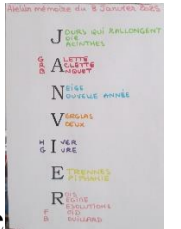 Atelier mémoire du 8 Janvier 2025
JOURS QUI RALLONGENT
JOIE
JACINTHES
GALETTE
RACLETTE
BANQUET
NEIGE
NOUVELLE ANNÉE
VERGLAS
VOEUX
HIVER
GIVRE
ETRENNES
EPIPHANIE
ROIS
REGIME
RESOLUTIONS
FROID
BROUILLARD